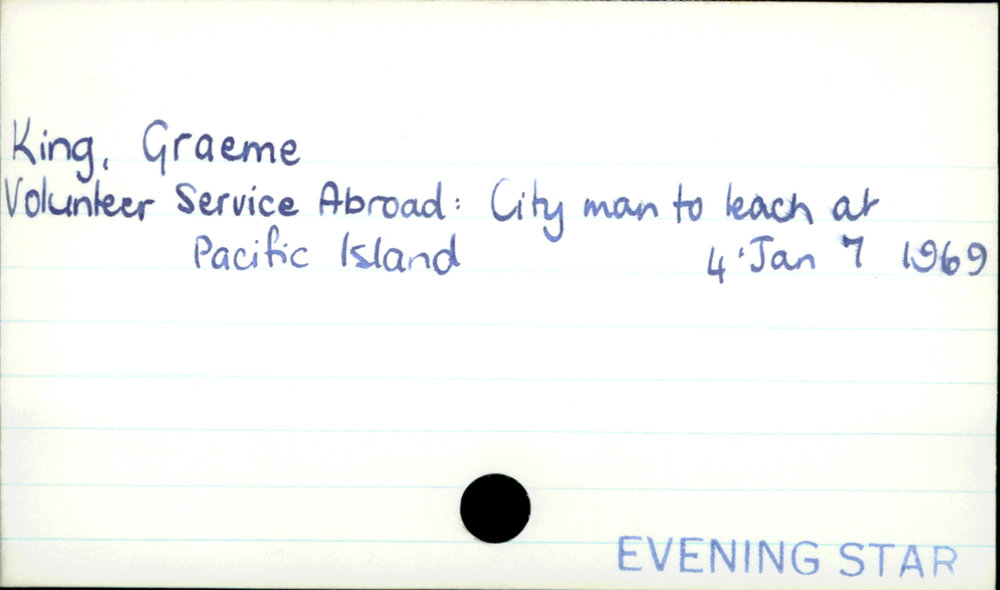 King, Graeme
Volunteer Service Abroad: City man to teach at
Pacific Island 4 'Jan 7 1969
EVENING STAR